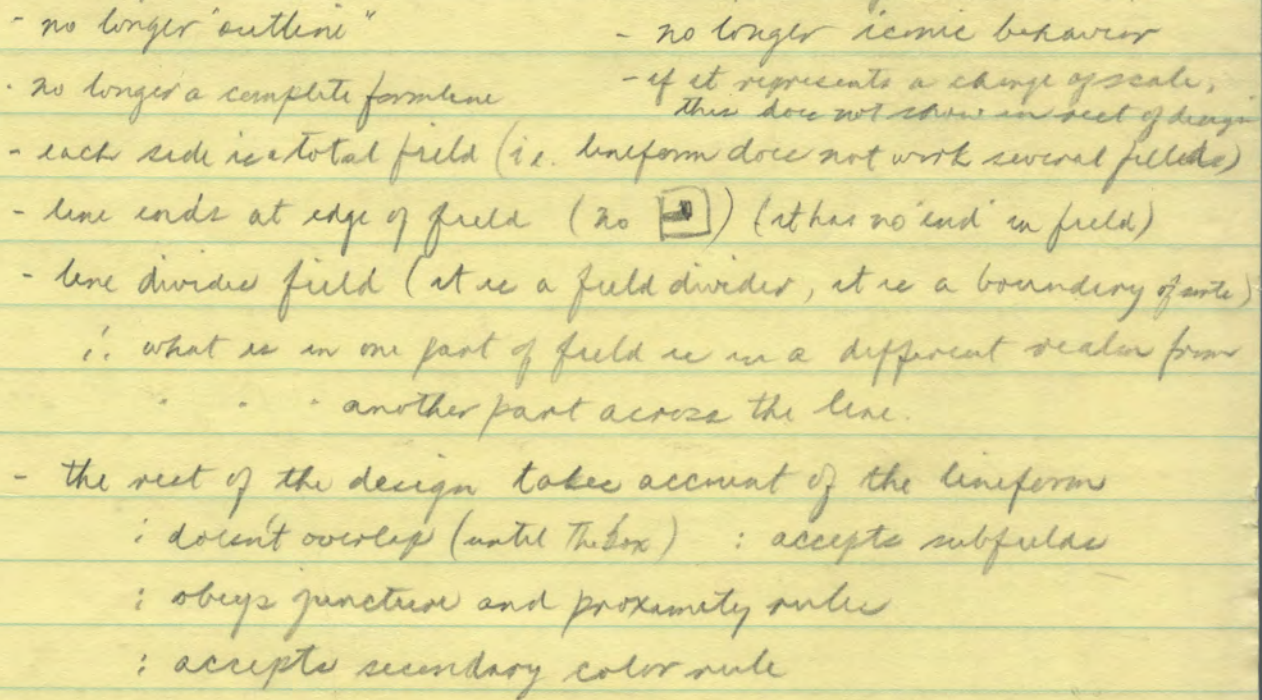 - no longer "outline"
- no longer iconic behavior
- no longer a complete formline
- if it represents a change of scale,
this does not show in rest of design
- each side is a total field (i.e. lineform does not work several fields)
- line ends at edge of field (no ) (it has no 'end' in field)
- line divides field (it is a field divider, it is a boundery of sorts)
: what is in one part of field is in a different realm from
" " " another part across the line.
- the rest of the design takes account of the lineform
: doesn't overlap (until the box) : accepts subfields
: obeys juncture and proximity rules
: accepts secondary color rule